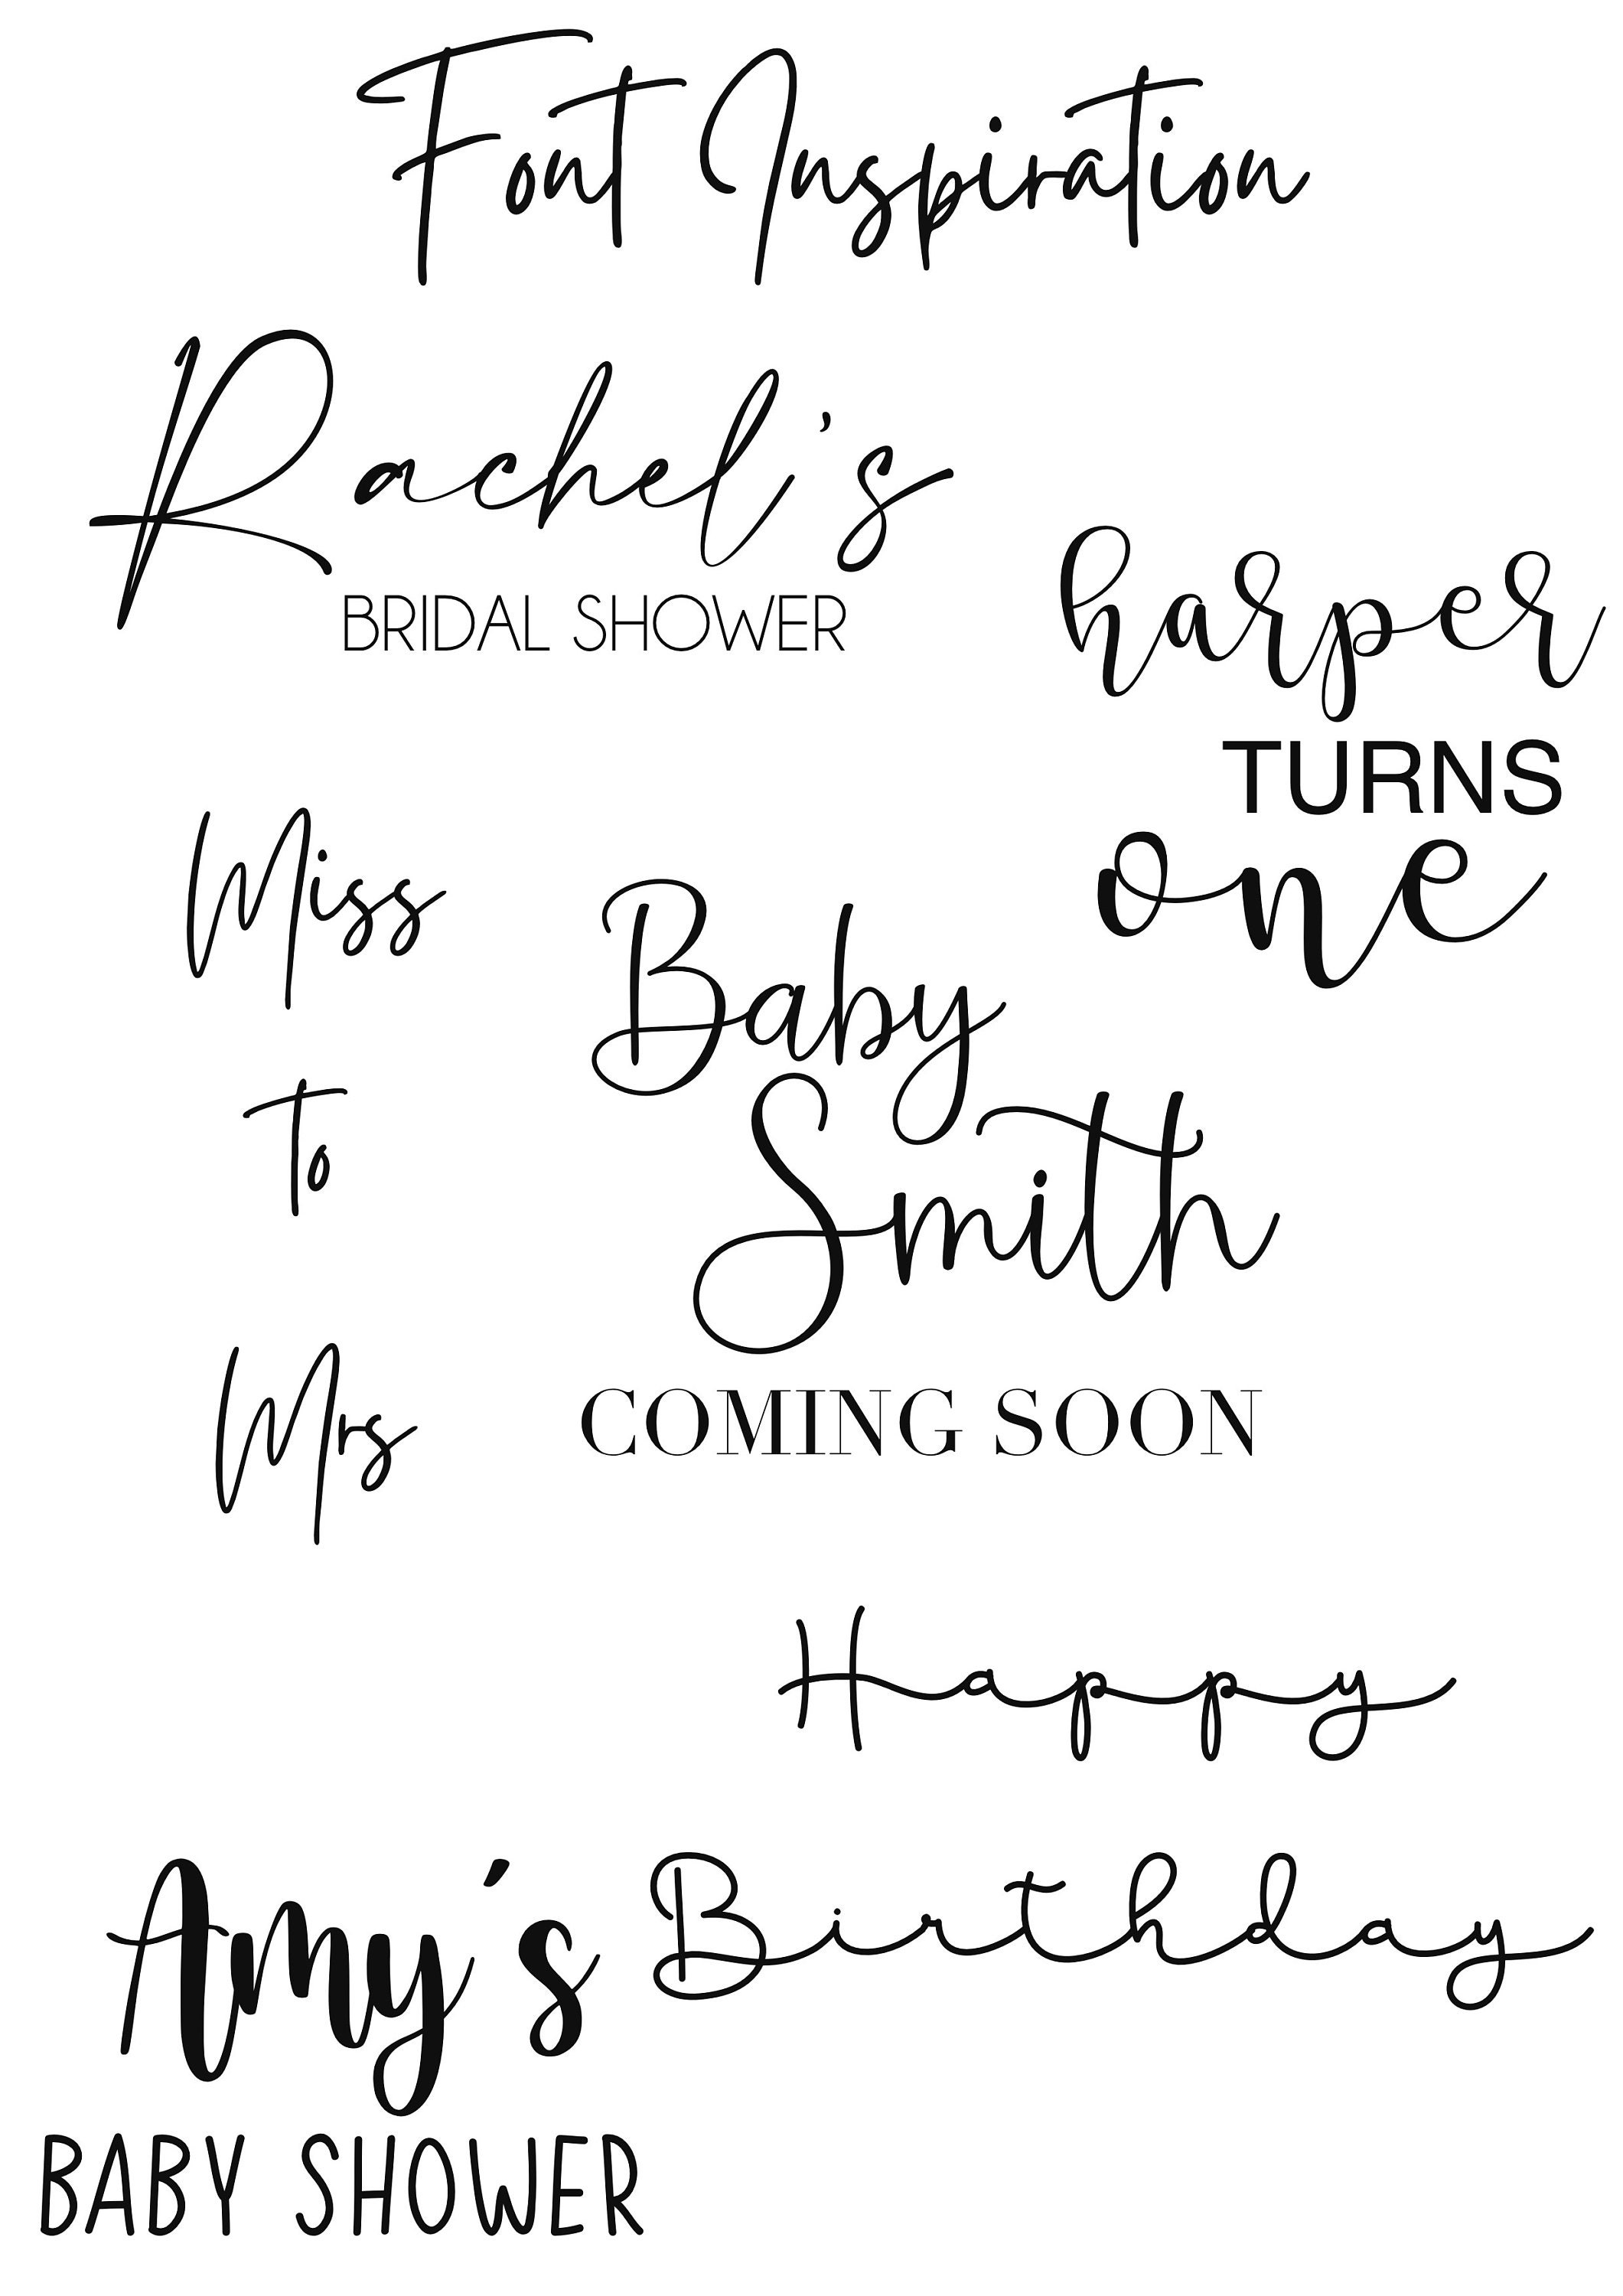 Font Inspiration
Rachel's
BRIDAL SHOWER
harper
TURNS
one
Miss
To
Mrs
Baby
Smith
COMING SOON
Happy
Birthday
Amy's
BABY SHOWER